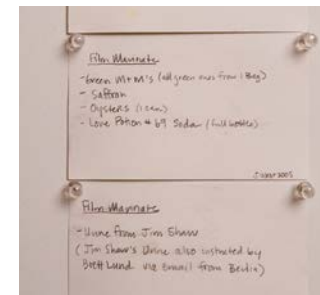 Film Marinate
- Green M+M's (all green ones from 1 Bag)
- Saffron
- Oysters (1 can)
- Love Potion # 69 Soda (full bottle)
2005
Film Marinate
- Urine from Jim Shaw
(Jim Shaw's Urine also instructed by
Brett Lund via Email from Berlin)